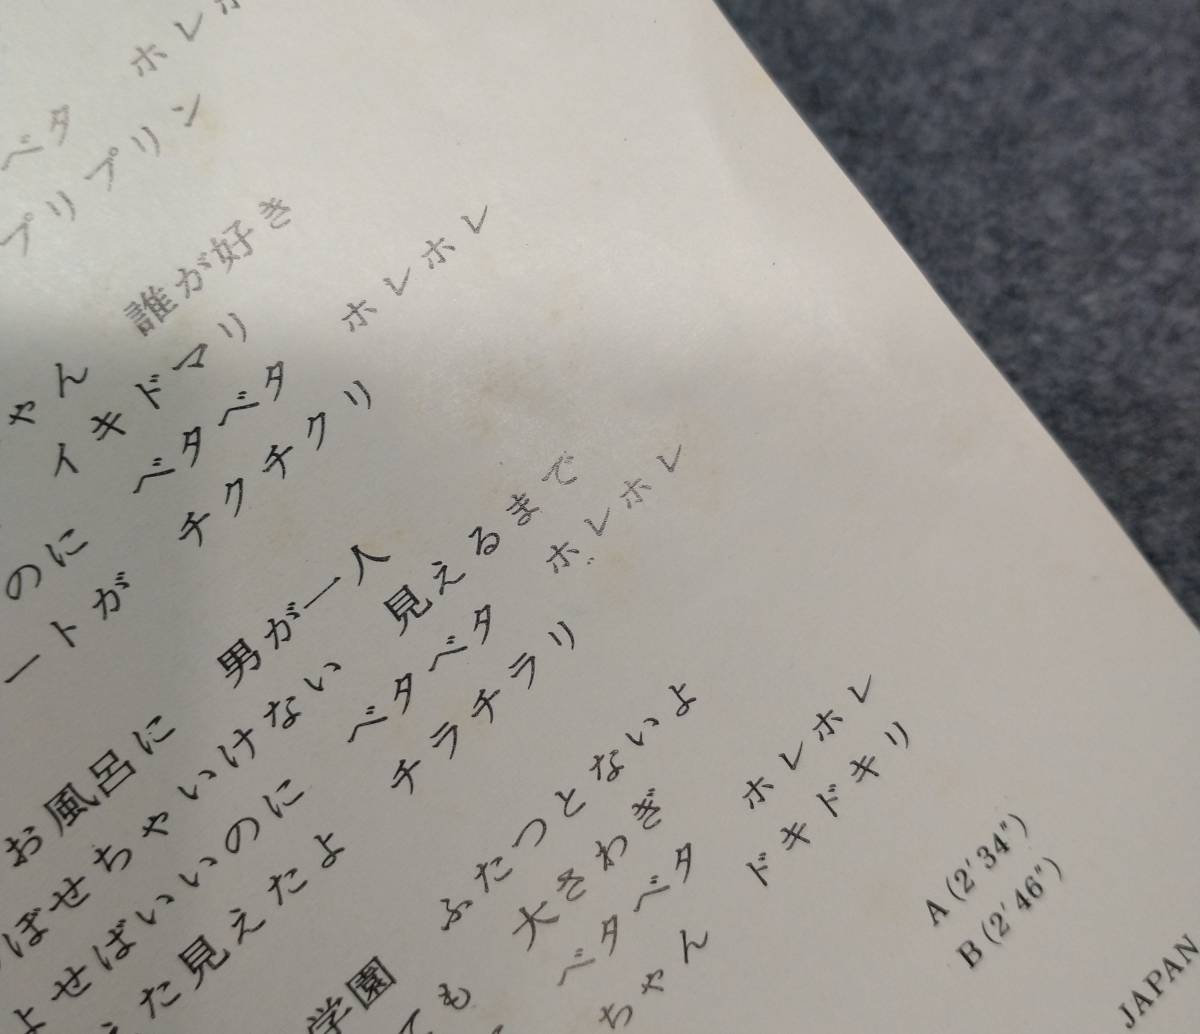 ベタ ホレ
プリプリン
ゃん 誰が好き
イキドマリ
のに ベタベタ ホレホレ
ートが チクチクリ
お風呂に 男が一人
ぼせちゃいけない 見えるまで
よせばいいのに ベタベタ ホレホレ
た見えたよ チラチラリ
学園 ふたつとないよ
ても 大さわぎ
ベタベタ ホレホレ
ちゃん ドキドキリ
A (2′34″)
B (2′46″)
JAPAN